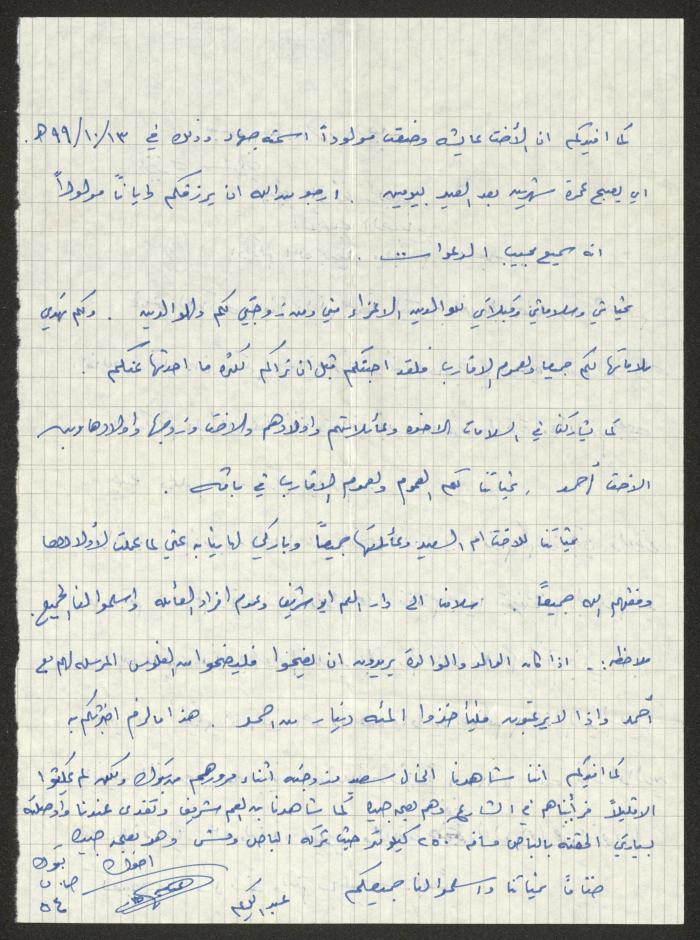 كما افيدكم ان الأخت عايشه وضعت مولوداً اسمته جهاد وذلك في ١٣/١٠/٩٩ هـ.
اي يصبح عمره شهرين بعد العيد بيومين . ارجو من الله ان يرزقكم وايانا مولوداً
انه سميع مجيب الدعوات ... .
تحياتي وسلاماتي وقبلاتي للوالدين الاعزاء مني ومن زوجتي لكم وللوالدين . ولكم تهدي
سلاماتها لكم جميعا ولعموم الاقارب فلقد احبتكم قبل ان تراكم لكثرة ما احدثها عنكم .
كما تشاركني في السلامات الاخوه وعائلاتهم واولادهم والاخت وزوجها واولادها وبيت
الاخت أحمد . تحياتنا لكم العموم ولعموم الاقارب في باقه .
تحياتنا للاخت ام السعيد وعائلتها جميعاً وباركي لها نيابه عني لما عملت لأولادها
وفقهم الله جميعاً . سلامنا الى دار العم ابو شريف وعموم افراد العائله واسلموا لنا الجميع.
ملاحظه :- اذا كان الوالد والوالدة يريدون ان يضحوا فليضحوا من الفلوس المرسله لهم مع
أحمد واذا لا يرغبون فليأخذوا المئه دينار من احمد . هذا ما لزم اخبرتكم به
كما افيدكم اننا شاهدنا الخال سعيد وزوجته أثناء مرورهم من تبوك ولكن لم يمكثوا
الا قليلاً فرأيناهم في الشارع وهم بصحه جيده كما شاهدنا بن العم شريف وتغدى عندنا واوصلته
بسيارتي الحقته بالباص مسافه ٢٥٠ كيلو متر حيث تركه الباص ومشى وهو بصحه جيده
ختاماً تحياتنا واسلموا لنا جميعكم
اخوك
عبد الكريم
تبوك
ص.ب
٥٤